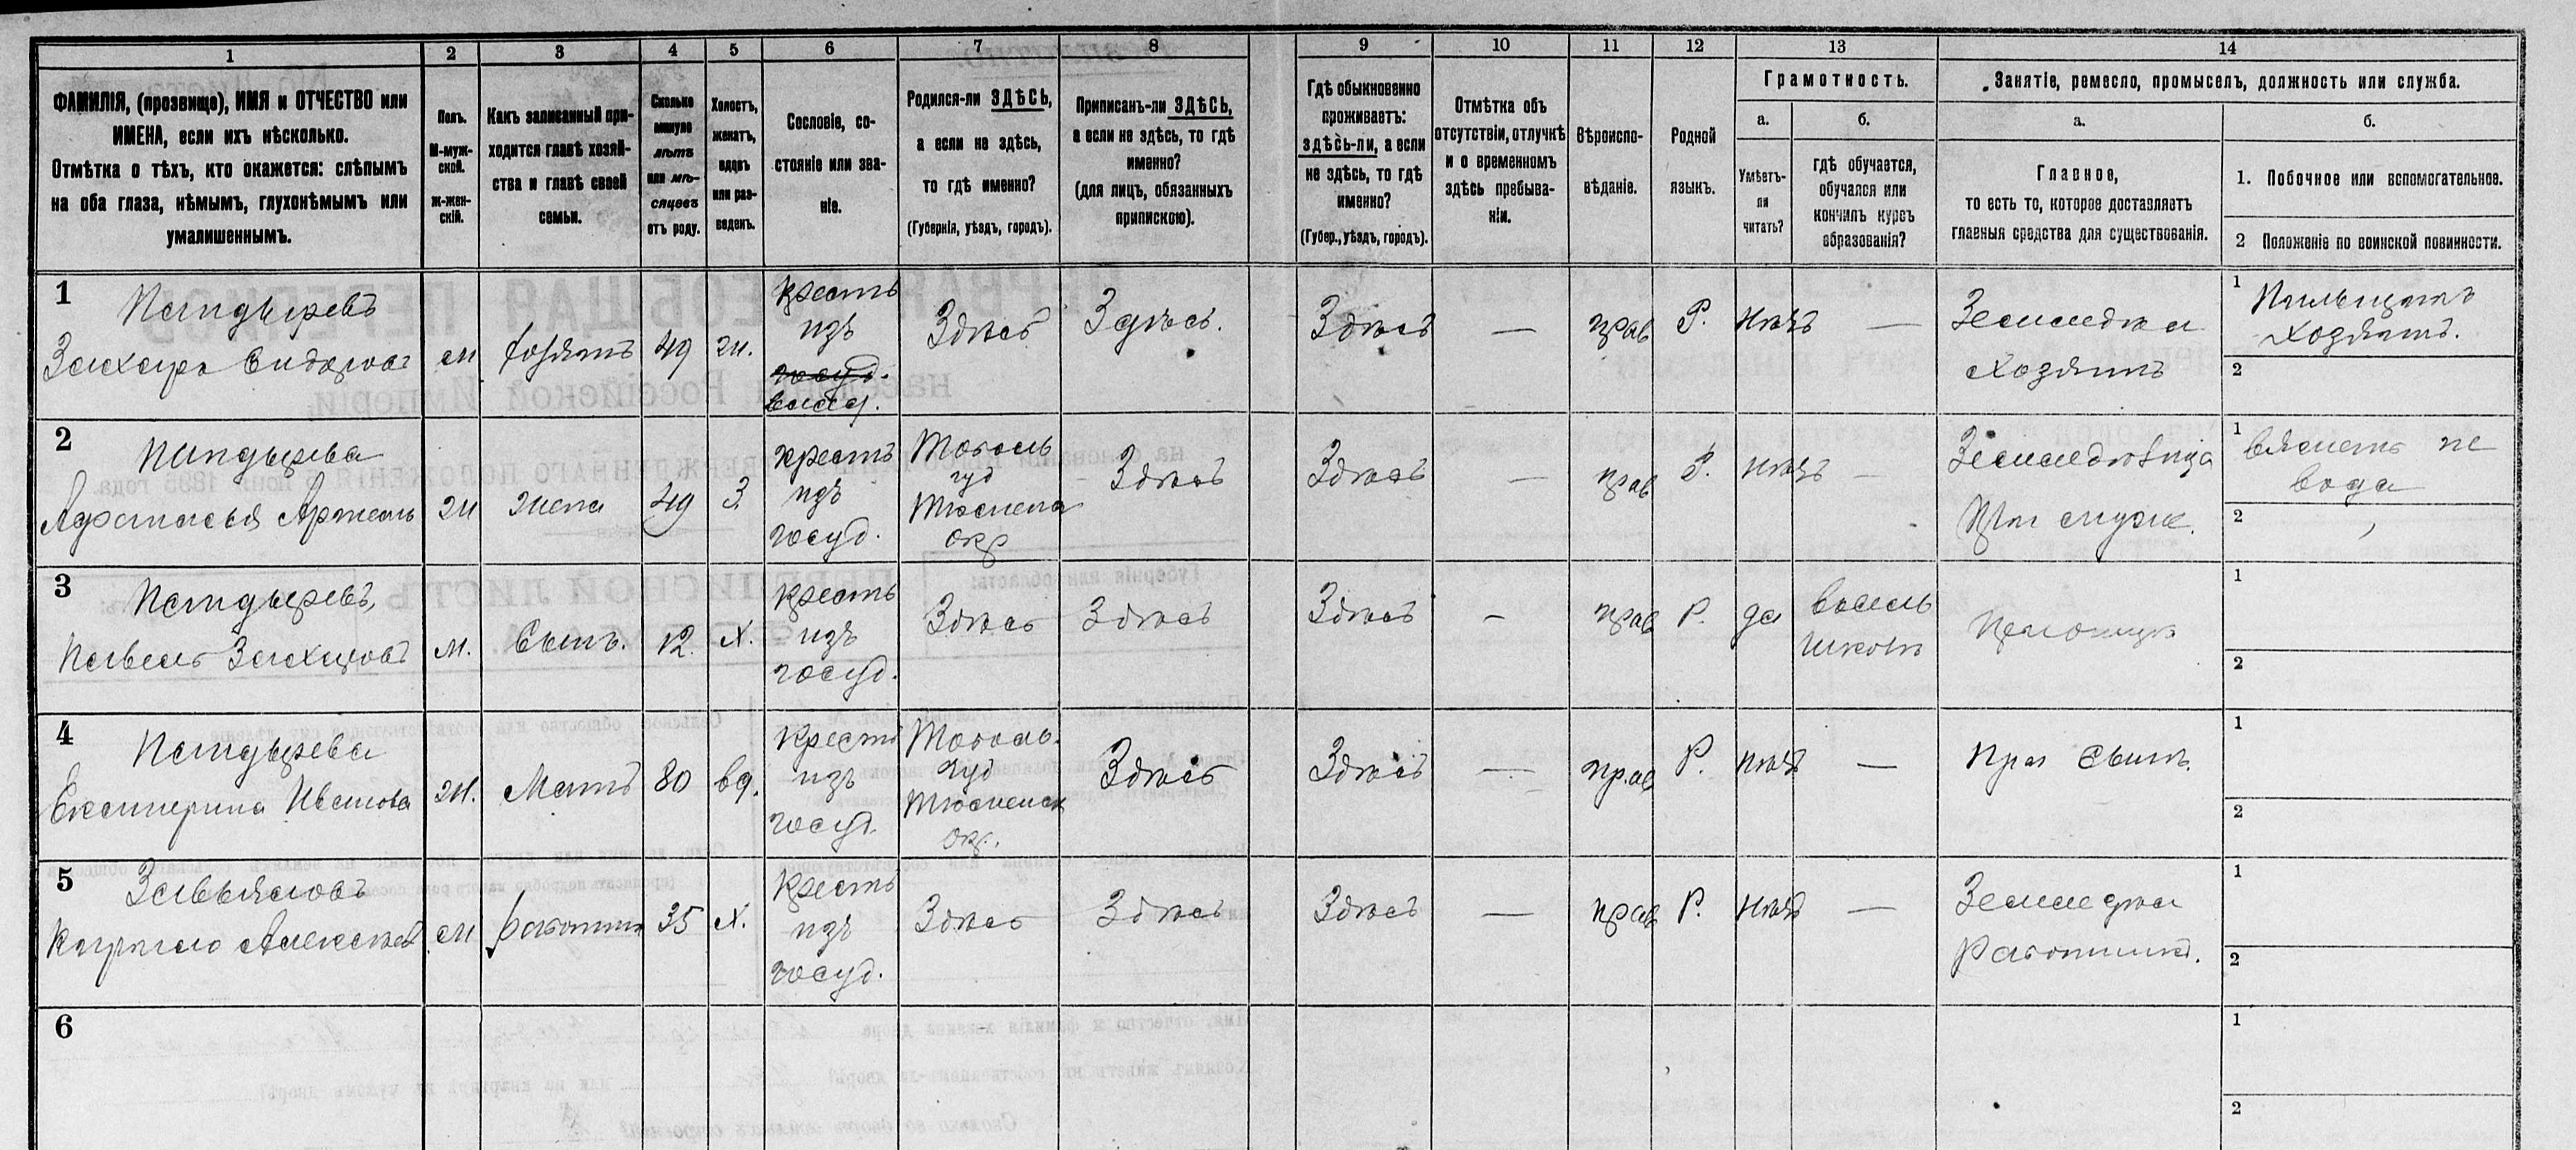 1 2 3 4 5 6 7 8 9 10 11 12 13 14
ФАМИЛІЯ, (прозвище), ИМЯ и ОТЧЕСТВО или
ИМЕНА, если ихъ нѣсколько.
Отмѣтка о тѣхъ, кто окажется: слѣпымъ
на оба глаза, нѣмымъ, глухонѣмымъ или
умалишеннымъ.
Полъ.
М-муж-
ской.
Ж-жен-
скій.
Какъ записанный при-
ходится главѣ хозяй-
ства и главѣ своей
семьи.
Сколько
минуло
лѣтъ
или мѣ-
сяцевъ
отъ роду.
Холостъ,
женатъ,
вдовъ
или раз-
веденъ.
Сословіе, со-
стояніе или зва-
ніе.
Родился-ли ЗДѢСЬ,
а если не здѣсь,
то гдѣ именно?
(Губернія, уѣздъ, городъ).
Приписанъ-ли ЗДѢСЬ,
а если не здѣсь, то гдѣ
именно?
(для лицъ, обязанныхъ
припискою).
Гдѣ обыкновенно
проживаетъ:
здѣсь-ли, а если
не здѣсь, то гдѣ
именно?
(Губер., уѣздъ, городъ).
Отмѣтка объ
отсутствіи, отлучкѣ
и о временномъ
здѣсь пребыва-
ніи.
Вѣроиспо-
вѣданіе.
Родной
языкъ.
Грамотность.
а.
Умѣетъ-
ли
читать?
б.
гдѣ обучается,
обучался или
кончилъ курсъ
образованія?
Занятіе, ремесло, промыселъ, должность или служба.
а.
Главное,
то есть то, которое доставляетъ
главныя средства для существованія.
б.
1. Побочное или вспомогательное.
2 Положеніе по воинской повинности.
1
Пандыревъ
Захаръ Сидоровъ
м
хозяинъ
49
ж.
крестъ
изъ
госуд.
Здѣсь
Здѣсь.
Здѣсь
—
прав
Р.
нѣтъ
—
Земледѣл
хозяинъ
1
хозяинъ.
2
2
Пандырева
Афанасья Артемь
ж
жена
49
З.
крестъ
изъ
госуд.
Тоболь
гуд
Тюмена
окр
Здѣсь
Здѣсь
—
прав
Р.
нѣтъ
—
Земледѣлица
При муже.
1
2
3
Пандыревъ,
Павелъ Захаровъ
м.
Сынъ.
12.
Х.
крестъ
изъ
госуд.
Здѣсь
Здѣсь
Здѣсь
-
прав
Р.
да
въ сель
школѣ
При отцѣ
1
2
4
Пандырева
Екатерина Иванова
ж.
Мать
80
вд.
Крестъ
изъ
госуд.
Тоболь.
гуд
Тюменск
окр.
Здѣсь
Здѣсь
—
прав
Р.
нѣтъ
—
При сынѣ.
1
2
5
Завьяловъ
Кирило Алексѣев
м
работник
35
Х.
Крестъ
изъ
госуд.
Здѣсь
Здѣсь
Здѣсь
—
прав
Р.
нѣтъ
—
Земледѣл
Работникъ.
1
2
6
1
2